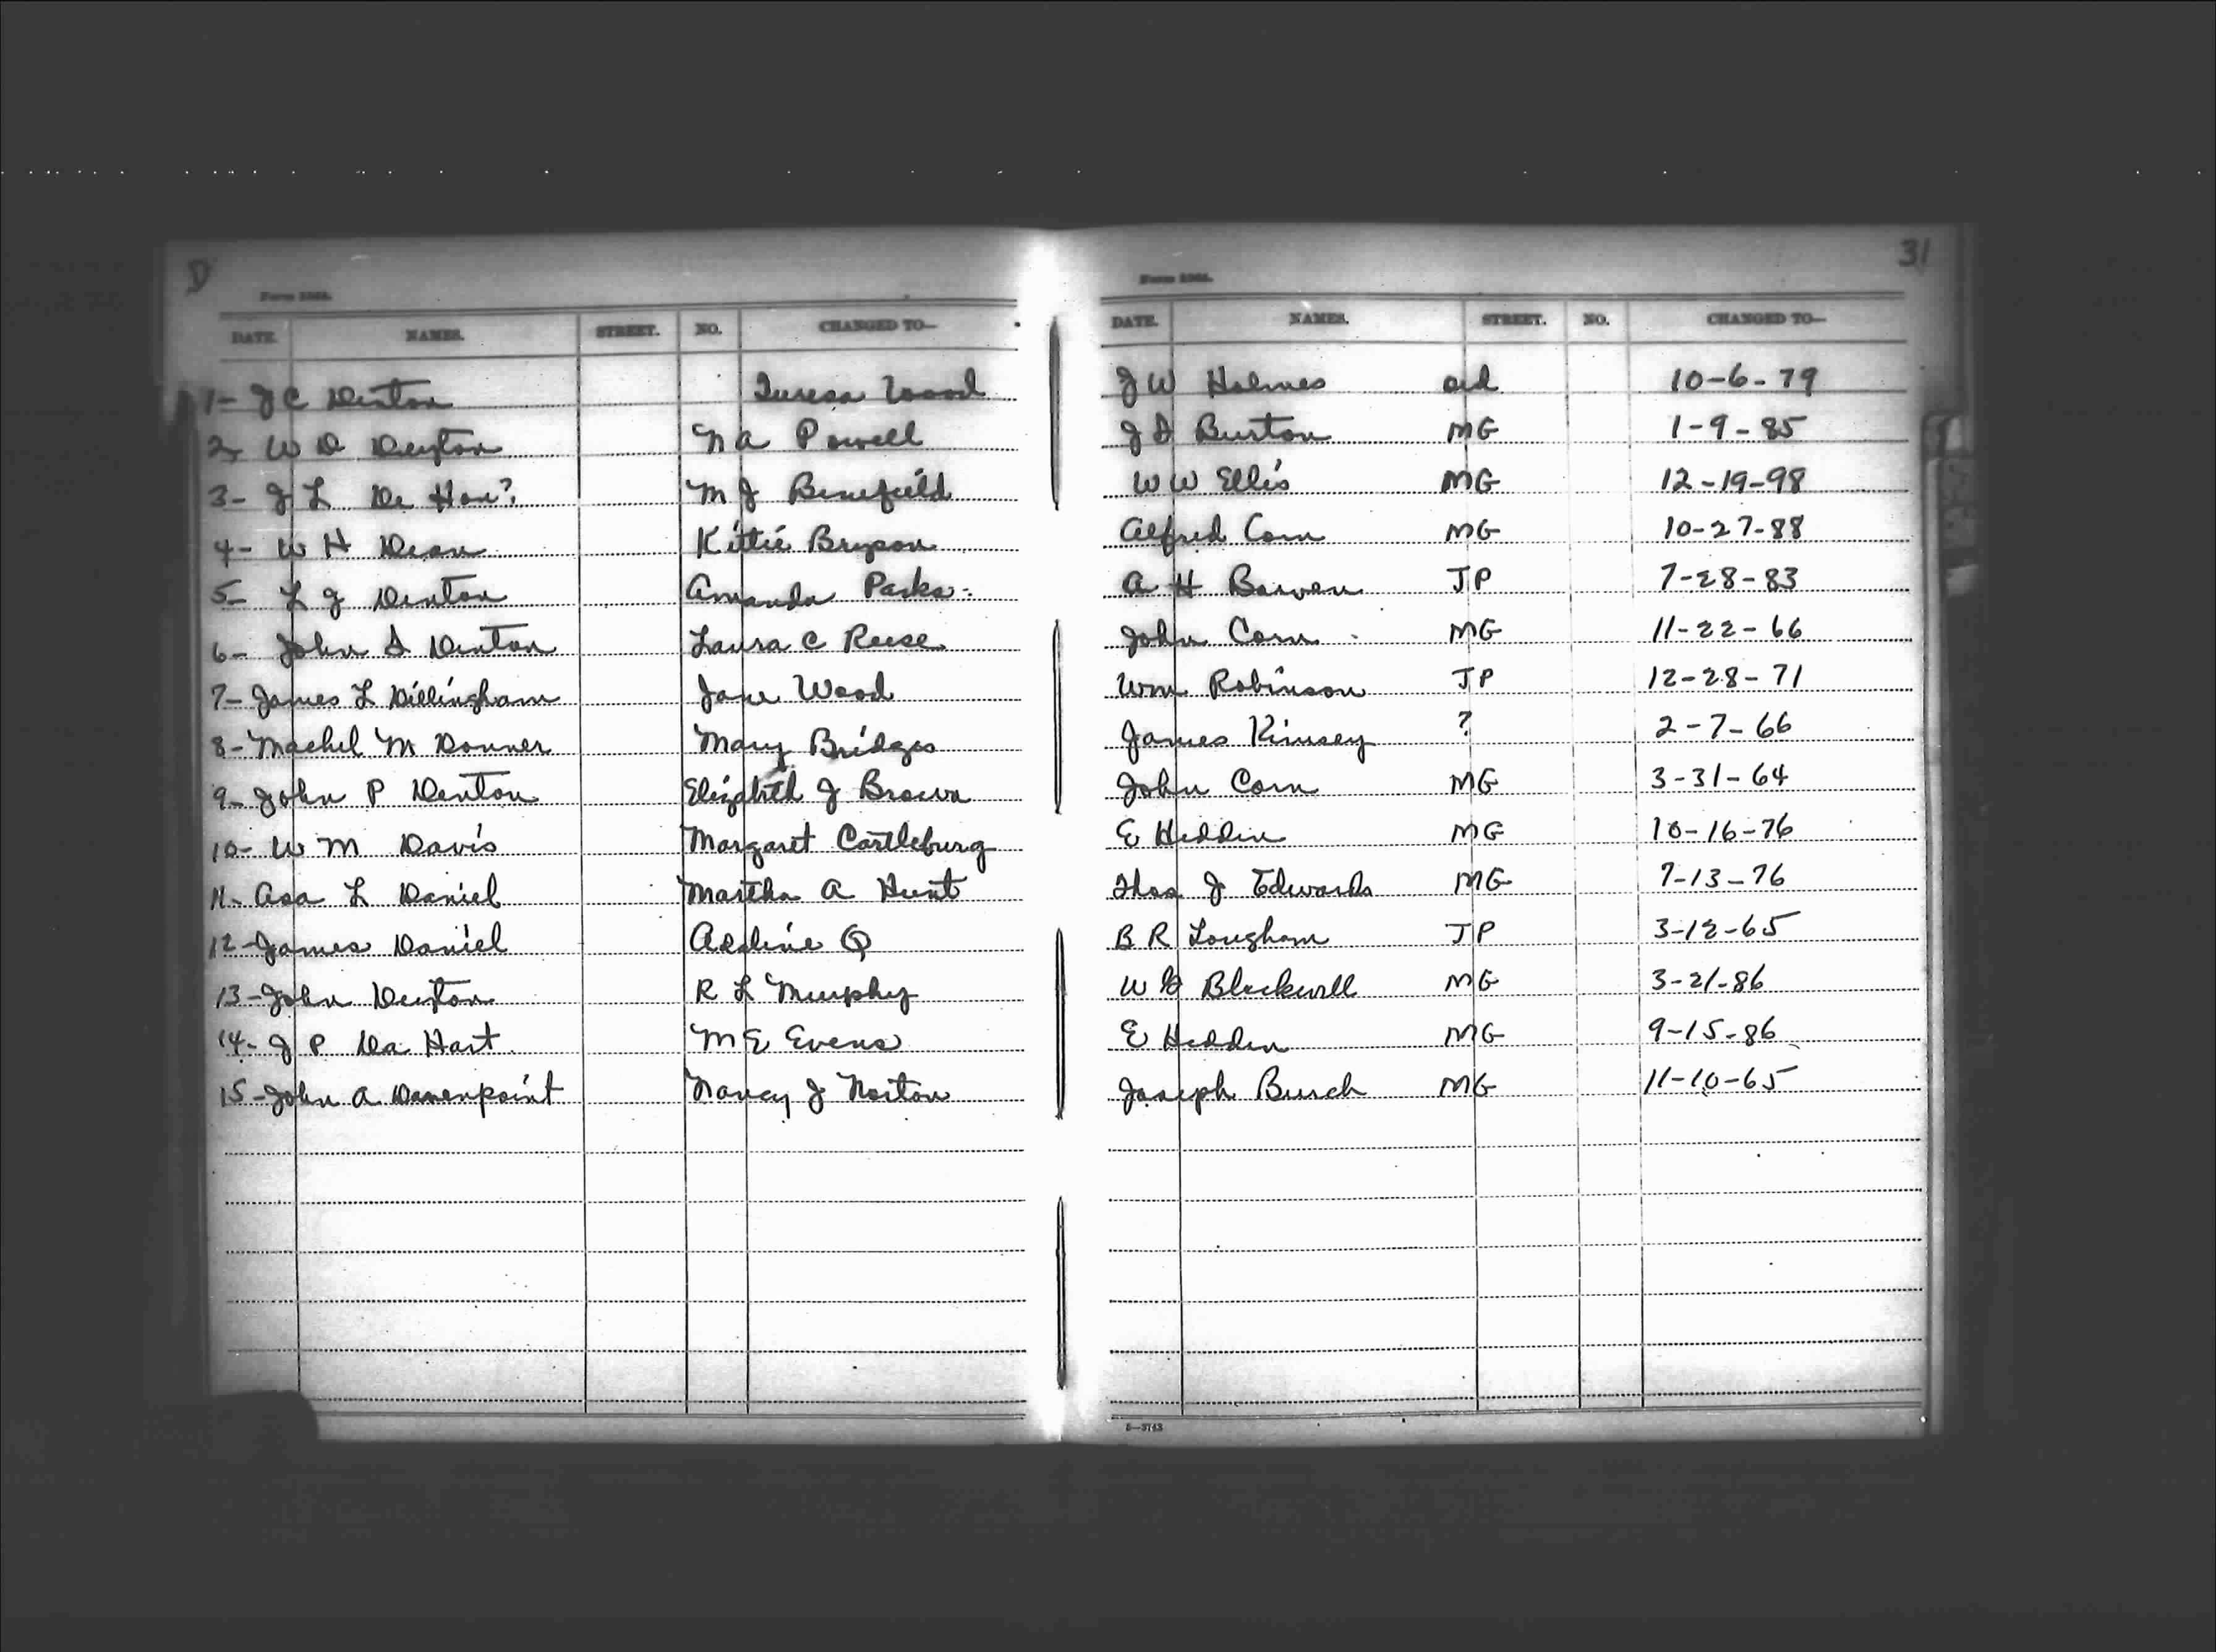 D 31
Form 1063. Form 1063.
DATE. NAMES. STREET. NO. CHANGED TO— DATE. NAMES. STREET. NO. CHANGED TO—
1- J C Denton Teresa Wood J W Holmes ord 10-6-79
2- W D Deyton N A Powell J S Burton MG 1-9-85
3- J L De Hon? M J Benefield W W Ellis MG 12-19-98
4- W H Dean Kittie Bryson Alfred Corn MG 10-27-88
5- L J Denton Amanda Parks A H Bowen JP 7-28-83
6- John S Denton Laura C Reese John Corn MG 11-22-66
7- James L Dillingham Jane Wood Wm Robinson JP 12-28-71
8- Machel M Donner Mary Bridges James Kimsey ? 2-7-66
9- John P Denton Elizabeth J Brown John Corn MG 3-31-64
10- W M Davis Margaret Castleburg E Hedden MG 10-16-76
11- Asa L Daniel Martha A Hunt Thos J Edwards MG 7-13-76
12- James Daniel Adline Q B R Lougham JP 3-12-65
13- John Deyton R L Murphy W G Blackwell MG 3-21-86
14- J P Da Hart M E Evens E Hedden MG 9-15-86
15- John A Davenpoint Nancy J Norton Joseph Burch MG 11-10-65